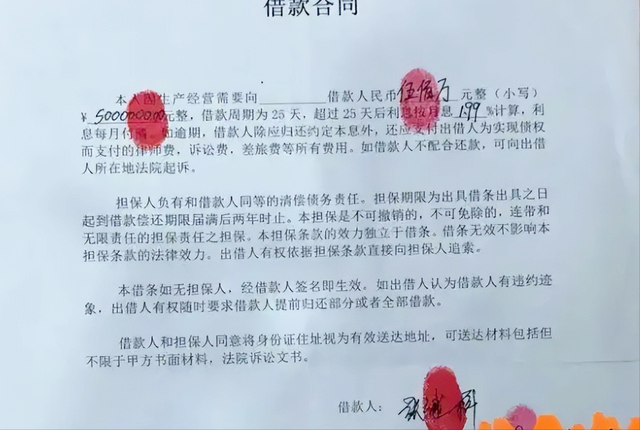 借款合同
本人因生产经营需要向________借款人民币伍佰万元整（小写）
￥5000000.00元整，借款周期为 25 天，超过 25 天后利息按月息 1.99 %计算，利
息每月付清。如逾期，借款人除应归还约定本息外，还应支付出借人为实现债权
而支付的律师费，诉讼费，差旅费等所有费用。如借款人不配合还款，可向出借
人所在地法院起诉。
担保人负有和借款人同等的清偿债务责任。担保期限为出具借条出具之日
起到借款偿还期限届满后两年时止。本担保是不可撤销的，不可免除的，连带和
无限责任的担保责任之担保。本担保条款的效力独立于借条。借条无效不影响本
担保条款的法律效力。出借人有权依据担保条款直接向担保人追索。
本借条如无担保人，经借款人签名即生效。如出借人认为借款人有违约迹
象，出借人有权随时要求借款人提前归还部分或者全部借款。
借款人和担保人同意将身份证住址视为有效送达地址，可送达材料包括但
不限于甲方书面材料，法院诉讼文书。
借款人：张继科